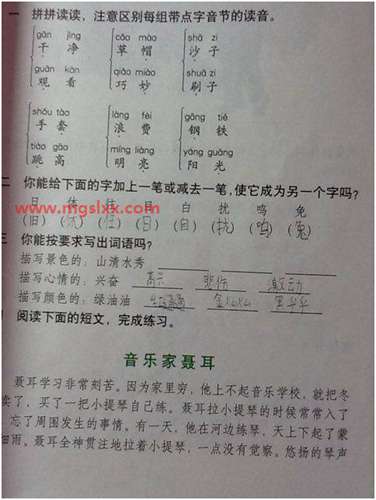 一 拼拼读读，注意区别每组带点字音节的读音。
gān jìng cǎo mào shā zi
干 净 草 帽 沙 子
guān kàn qiǎo miào shuā zi
观 看 巧 妙 刷 子
shǒu tào làng fèi gāng tiě
手 套 浪 费 钢 铁
tiào gāo míng liàng yáng guāng
跳 高 明 亮 阳 光
二 你能给下面的字加上一笔或减去一笔，使它成为另一个字吗？
日 体 目 白 扰 鸣 免
(旧) (白) (自) (扰) (鸣) (兔)
www.mgslxx.com
三 你能按要求写出词语吗？
描写景色的：山清水秀
描写心情的：兴奋 高兴 悲伤 激动
描写颜色的：绿油油
阅读下面的短文，完成练习。
音乐家聂耳
聂耳学习非常刻苦。因为家里穷，他上不起音乐学校，就把冬
卖了，买了一把小提琴自己练。聂耳拉小提琴的时候常常入了
忘了周围发生的事情。有一天，他在河边练琴，天上下起了蒙
细雨。聂耳全神贯注地拉着小提琴，一点没有觉察。悠扬的琴声